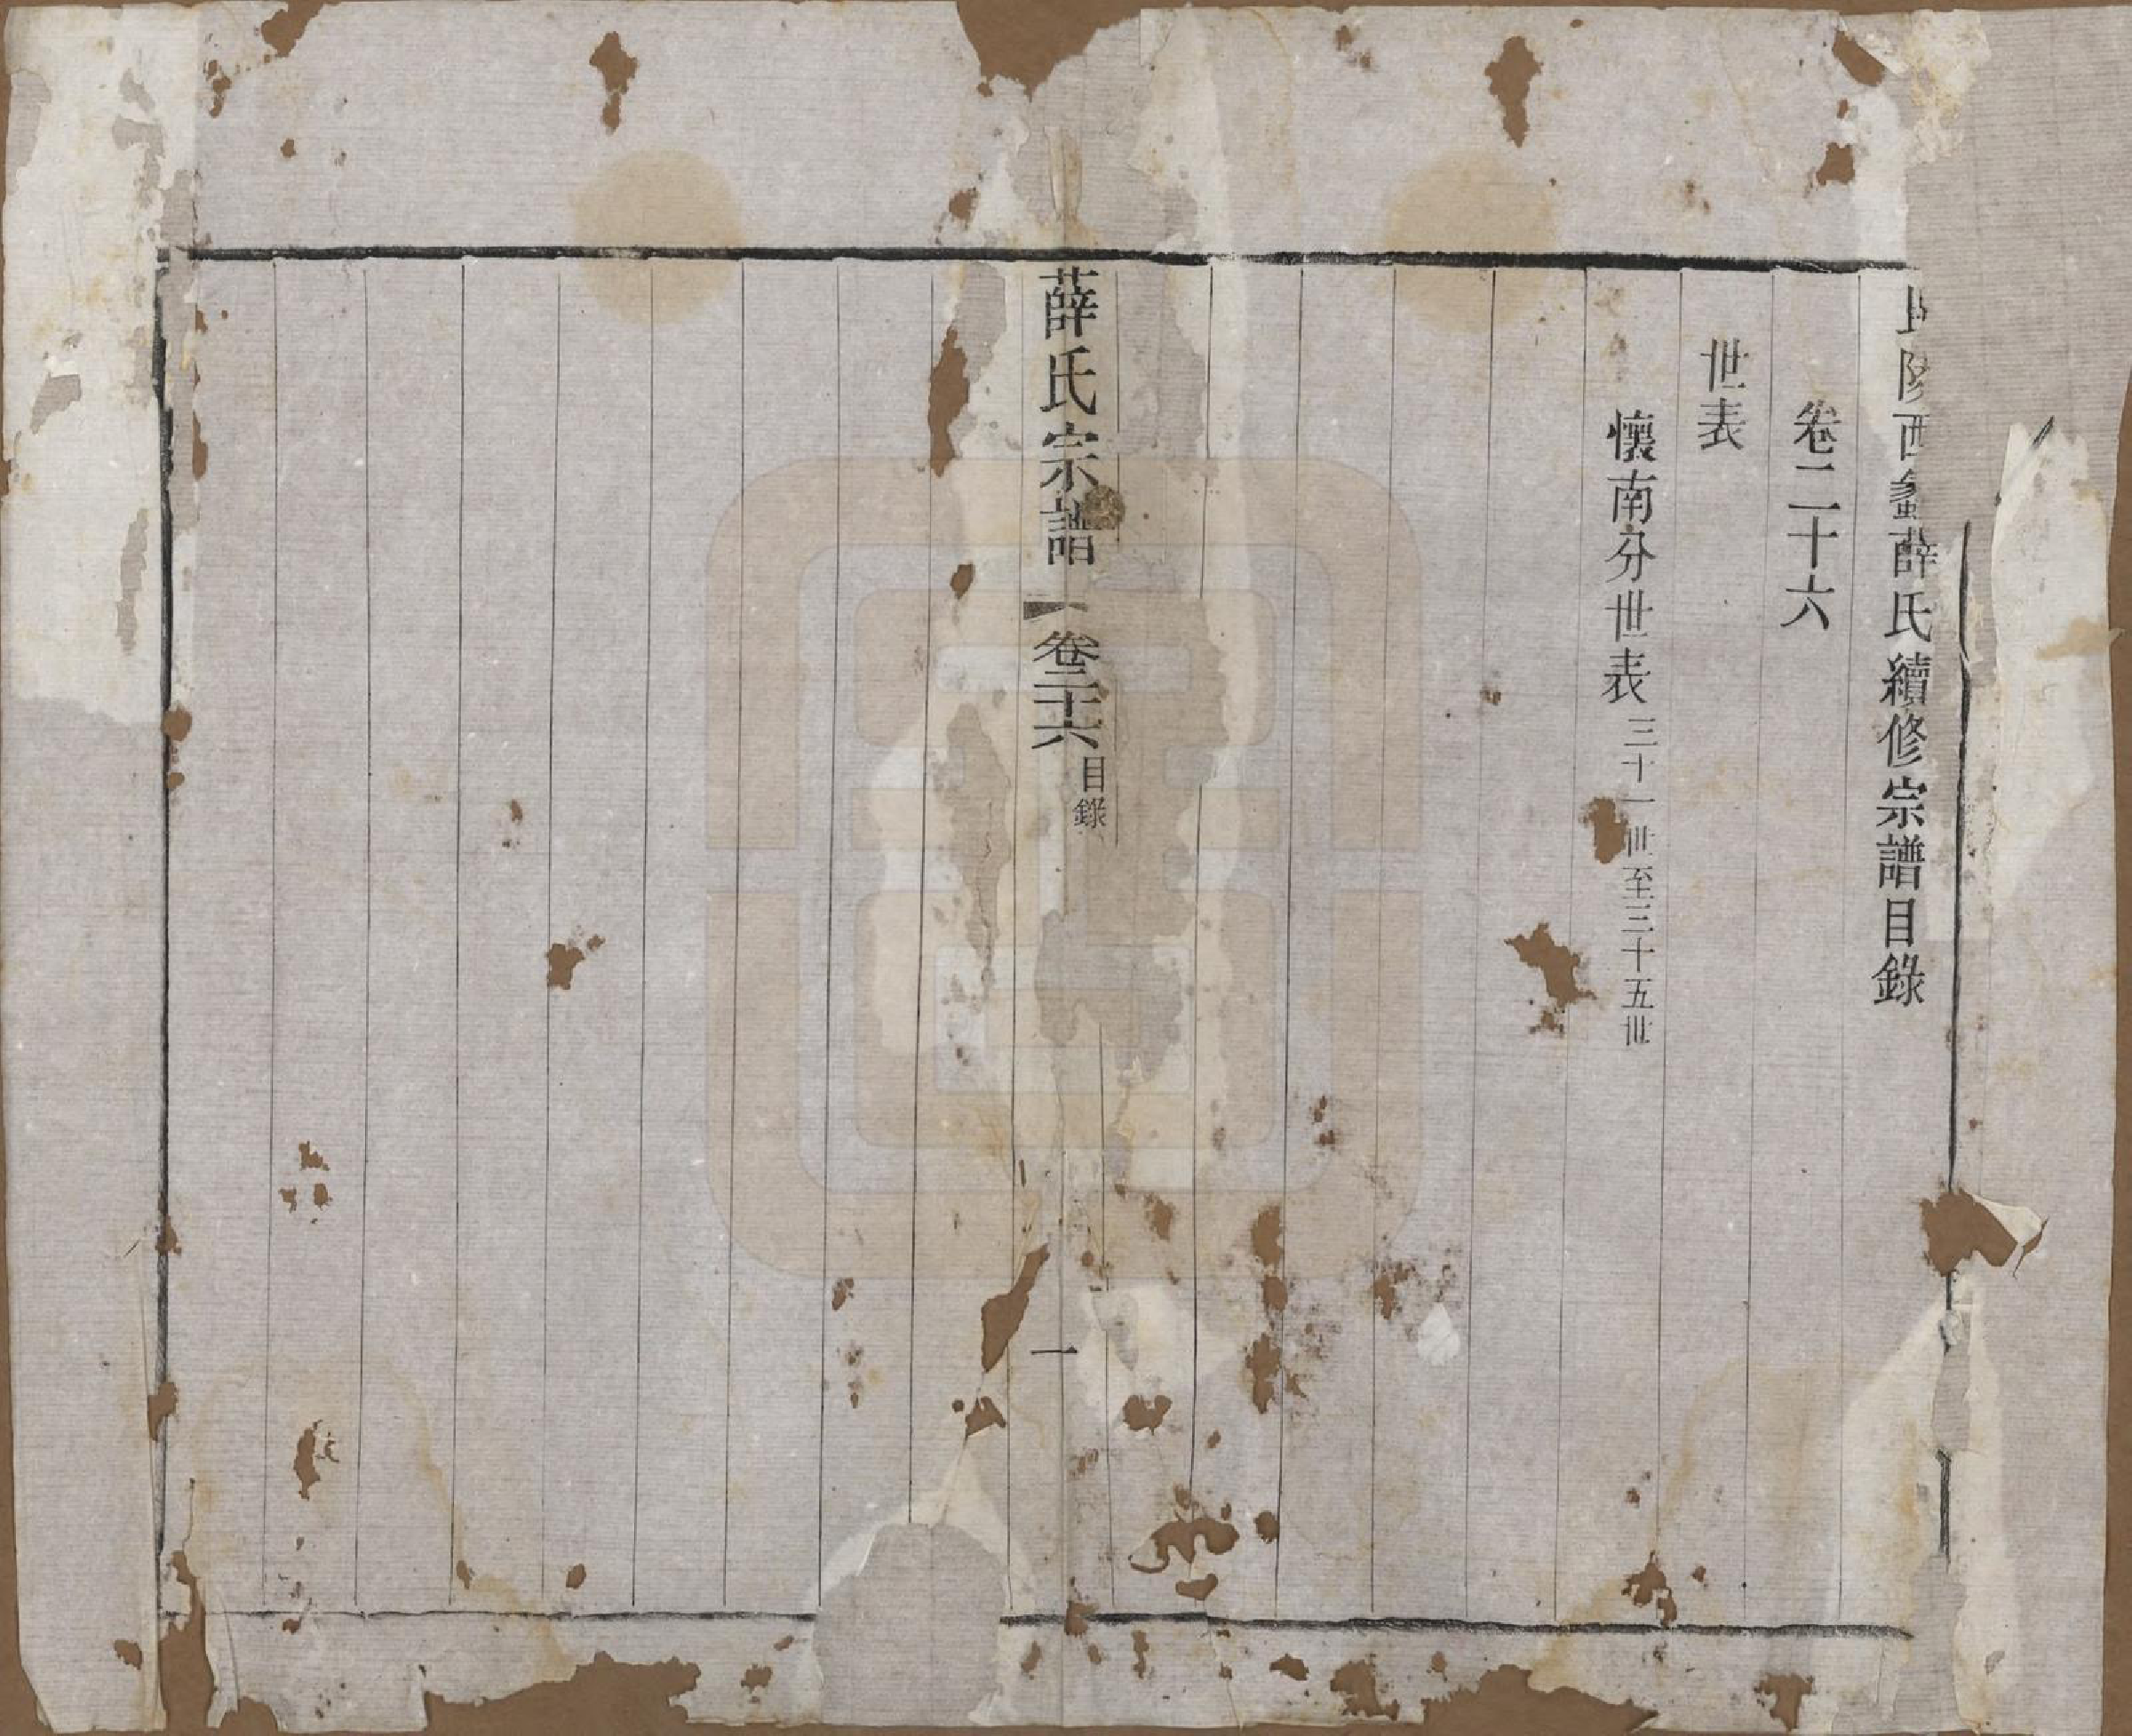 西蠡薛氏續修宗譜目錄
卷二十六
世表
懷南分世表 三十一世至三十五世
薛氏宗譜 卷二十六 目錄 一